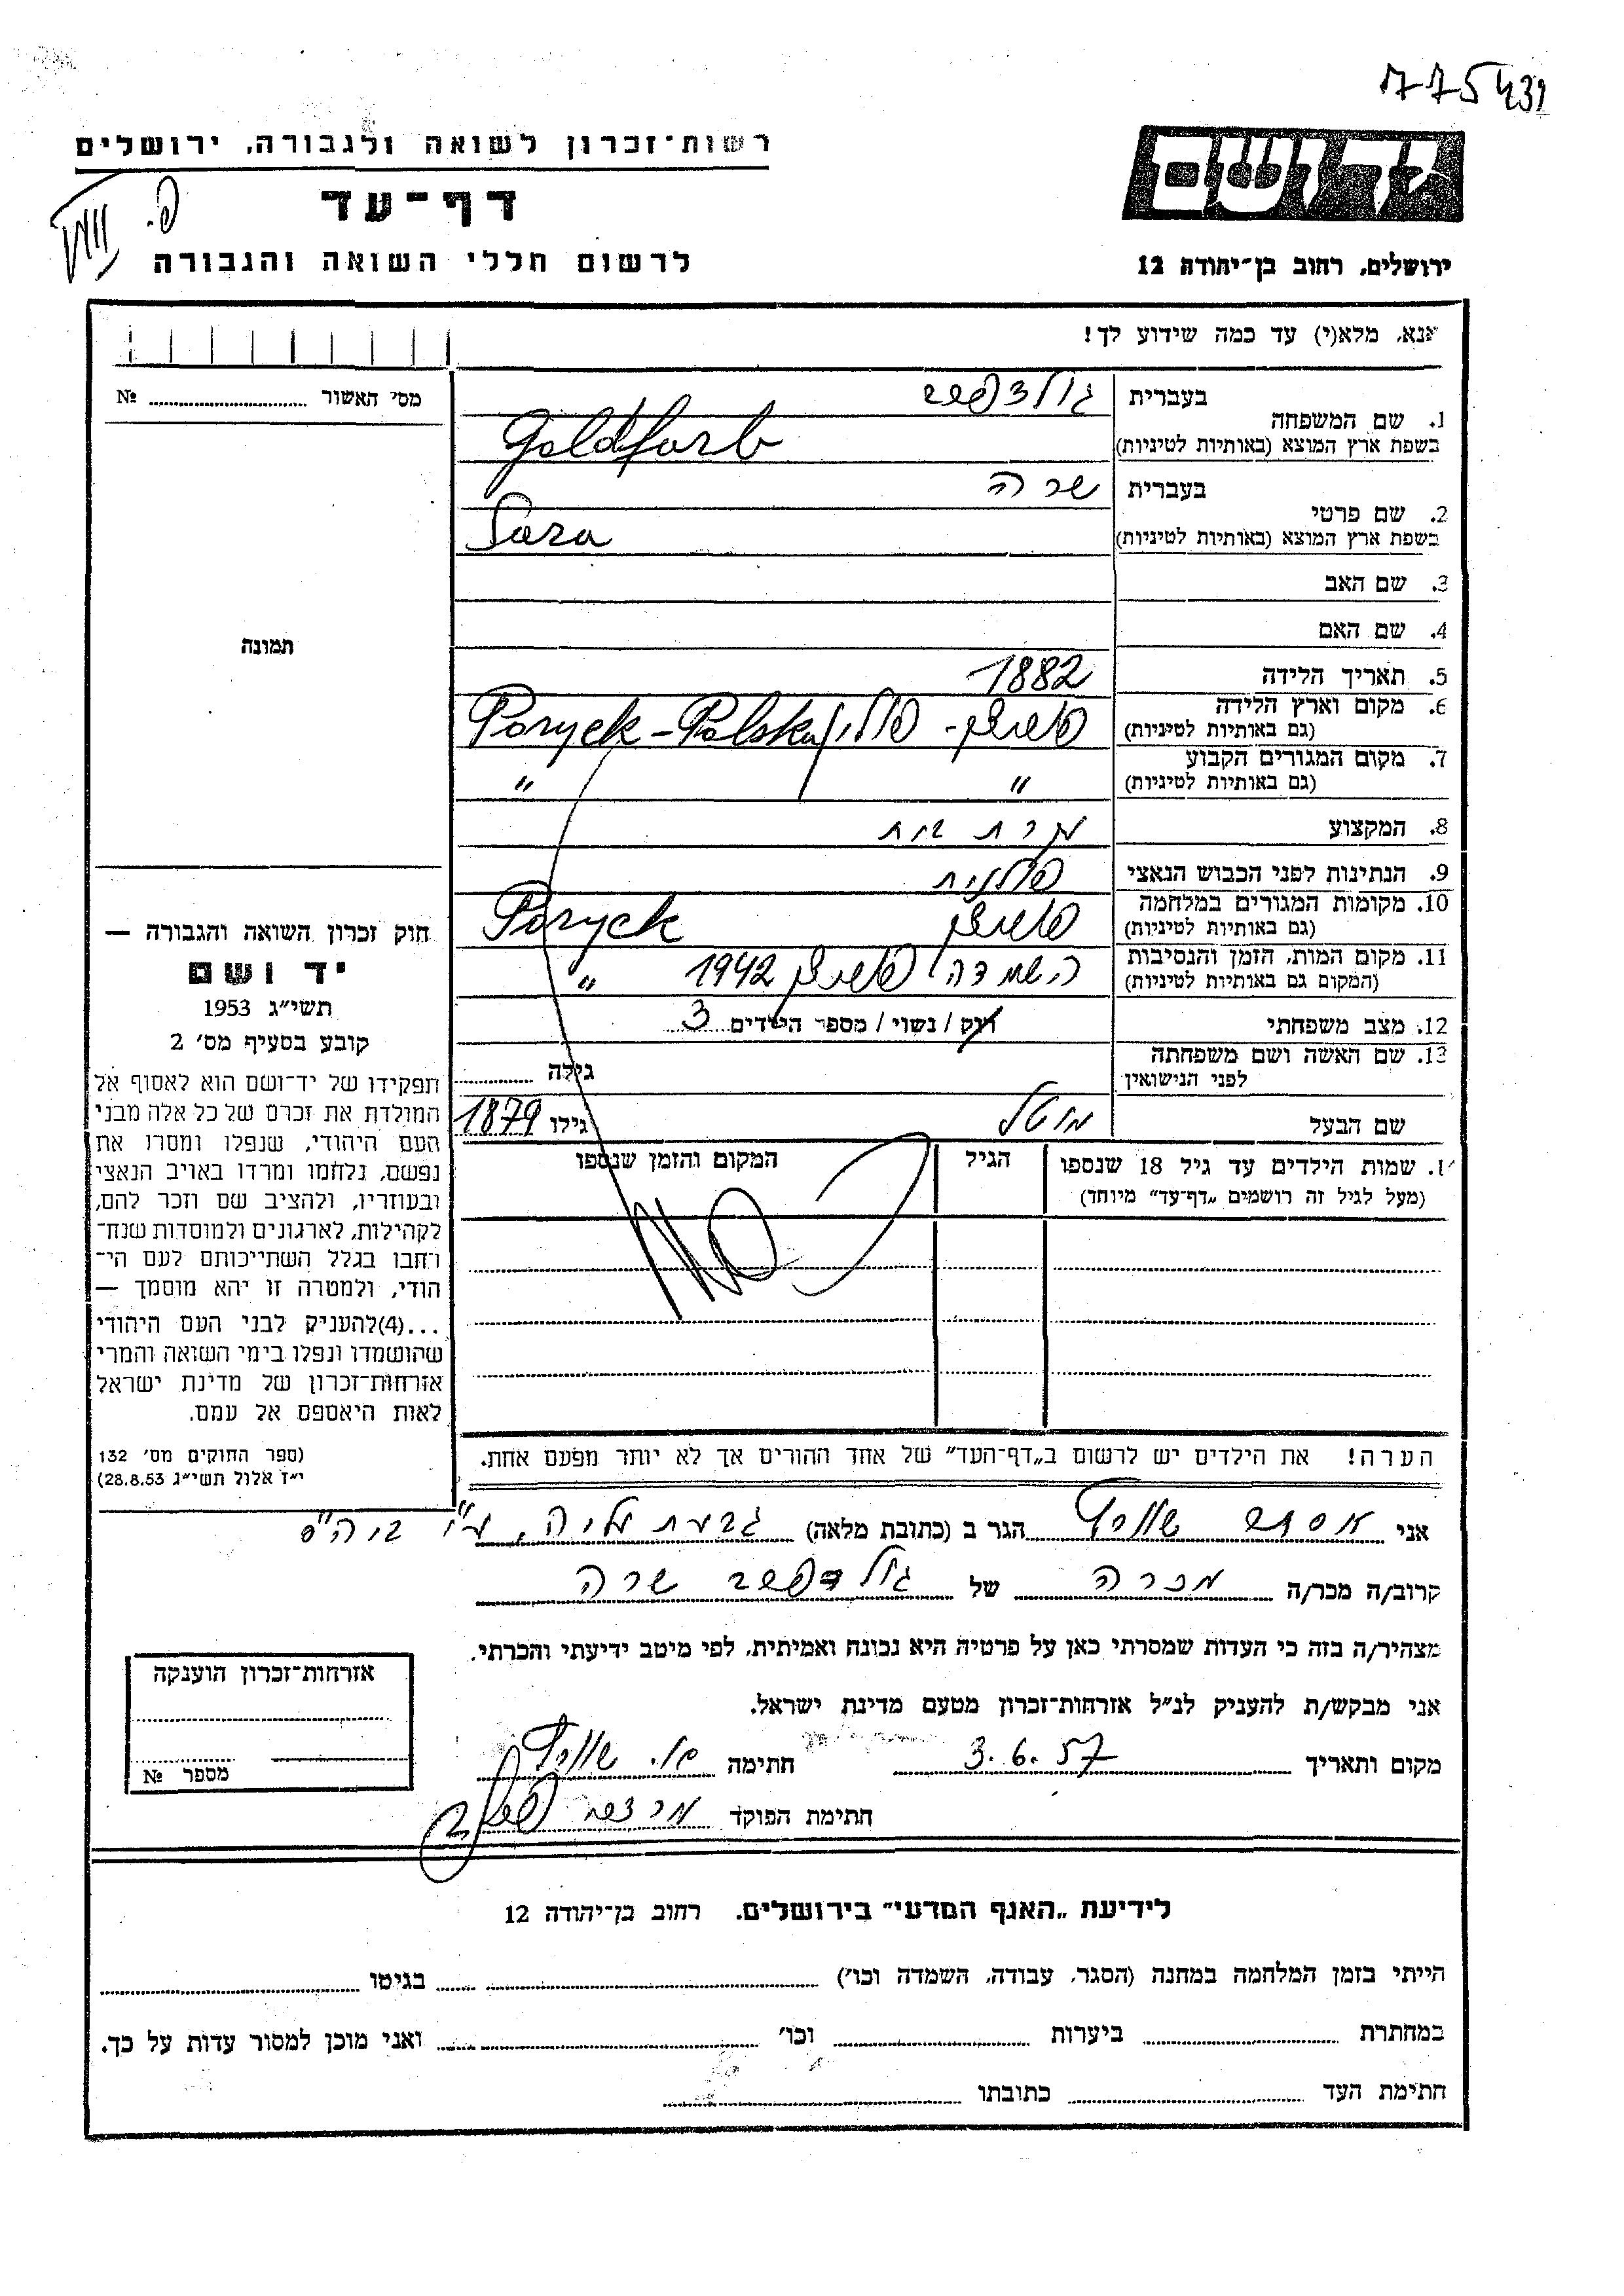 775432
רשות־זכרון לשואה ולגבורה, ירושלים
דף־עד
לרשום חללי השואה והגבורה
יד ושם
ירושלים, רחוב בן־יהודה 12
אנא, מלא(י) עד כמה שידוע לך!
מס׳ האשור № ........
1. שם המשפחה
בעברית גולדפרב
בשפת ארץ המוצא (באותיות לטיניות) Goldfarb
2. שם פרטי
בעברית שרה
בשפת ארץ המוצא (באותיות לטיניות) Sara
3. שם האב
4. שם האם
5. תאריך הלידה 1882
6. מקום וארץ הלידה
(גם באותיות לטיניות) פוריצק - פולין Poryck - Polska
7. מקום המגורים הקבוע
(גם באותיות לטיניות) " "
8. המקצוע עקרת בית
9. הנתינות לפני הכבוש הנאצי פולנית
10. מקומות המגורים במלחמה
(גם באותיות לטיניות) פוריצק Poryck
11. מקום המות, הזמן והנסיבות
(המקום גם באותיות לטיניות) השמדה פוריצק 1942 "
12. מצב משפחתי רווק / נשוי / מספר הילדים 3
13. שם האשה ושם משפחתה
לפני הנישואין גילה
שם הבעל מוטל גילו 1879
שמות הילדים עד גיל 18 שנספו
(מעל לגיל זה רושמים „דף־עד" מיוחד)
הגיל
המקום והזמן שנספו
תמונה
חוק זכרון השואה והגבורה —
יד ושם
תשי״ג 1953
קובע בסעיף מס׳ 2
תפקידו של יד־ושם הוא לאסוף אל
המולדת את זכרם של כל אלה מבני
העם היהודי, שנפלו ומסרו את
נפשם, נלחמו ומרדו באויב הנאצי
ובעוזריו, ולהציב שם וזכר להם,
לקהילות, לארגונים ולמוסדות שנח־
רבו בגלל השתייכותם לעם הי־
הודי, ולמטרה זו יהא מוסמך —
...(4)להעניק לבני העם היהודי
שהושמדו ונפלו בימי השואה והמרי
אזרחות־זכרון של מדינת ישראל
לאות היאספם אל עמם.
(ספר החוקים מס׳ 132
י״ז אלול תשי״ג 28.8.53)
הערה! את הילדים יש לרשום ב„דף־העד" של אחד ההורים אך לא יותר מפעם אחת.
אני אסתר הגר ב (כתובת מלאה) גבעת
קרוב/ה מכר/ה מכרה של גולדפרב שרה
מצהיר/ה בזה כי העדות שמסרתי כאן על פרטיה היא נכונה ואמיתית, לפי מיטב ידיעתי והכרתי.
אני מבקש/ת להעניק לנ״ל אזרחות־זכרון מטעם מדינת ישראל.
מקום ותאריך 3.6.57 חתימה
חתימת הפוקד
אזרחות־זכרון הוענקה
מספר №
לידיעת „האגף המדעי" בירושלים, רחוב בן־יהודה 12
הייתי בזמן המלחמה במחנה (הסגר, עבודה, השמדה וכו׳) ........ בגיטו ........
במחתרת ........ ביערות ........ וכו׳ ........ ואני מוכן למסור עדות על כך.
חתימת העד ........ כתובתו ........